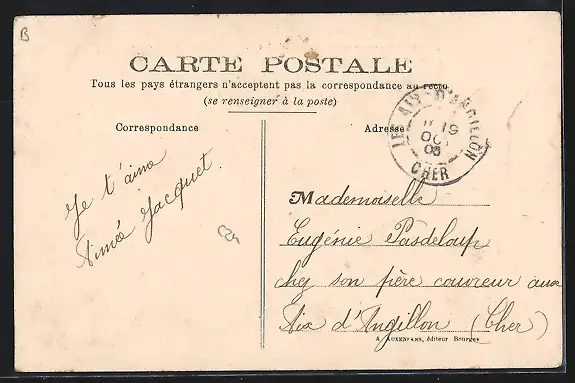 B
CARTE POSTALE
Tous les pays étrangers n'acceptent pas la correspondance au recto
(se renseigner à la poste)
Correspondance
Adresse
LES AIX-D'ANGILLON
19
OC
05
CHER
Je t'aime
Aimée Jacquet.
C24
Mademoiselle
Eugénie Pasdeloup
chez son père couvreur aux
Aix d'Angillon (Cher)
A. AUXENFANS, éditeur Bourges